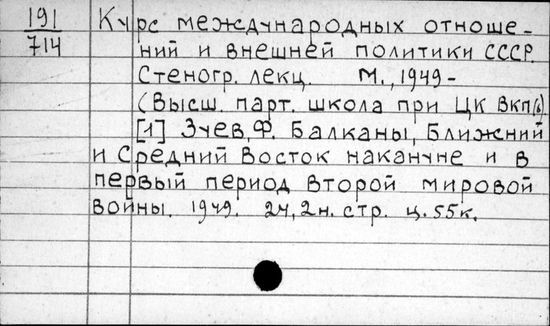 191
714
Курс международных отноше-
ний и внешней политики СССР.
Стеногр. лекц. М., 1949-
(Высш. парт. школа при ЦК ВКП(б)
[1] Зуев, Ф. Балканы, Ближний
и Средний Восток накануне и в
первый период второй мировой
войны. 1949. 24, 2н. стр. ц. 55к.